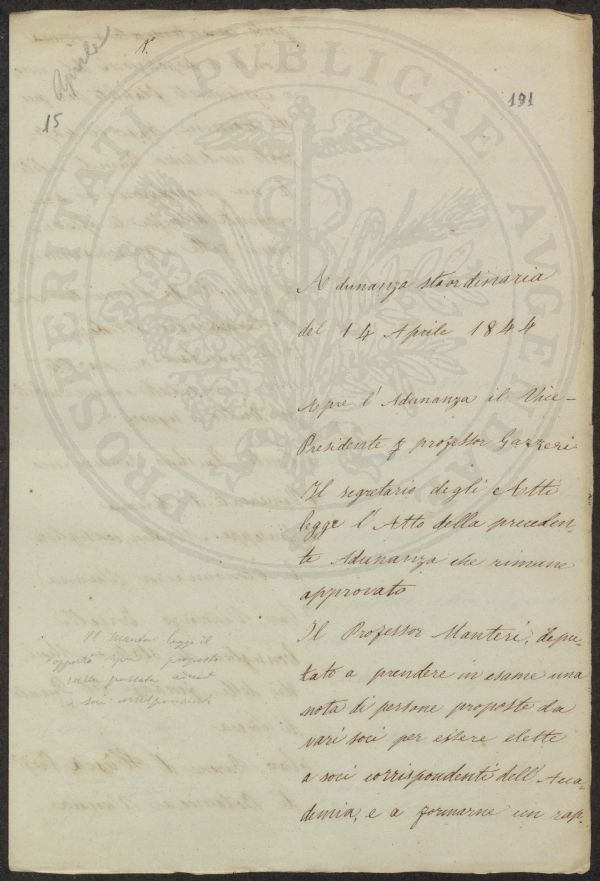 Aprile
15
1º
191
PROSPERITATI PUBLICAE AUGENDAE
Adunanza staordinaria
del 14 Aprile 1844
Apre l'Adunanza il Vice-
Presidente professor Gazzeri
Il segretario degli Atti
legge l'Atto della preceden-
te Adunanza che rimane
approvato
Il Professor Manteri, depu-
tato a prendere in esame una
nota di persone proposte da
vari soci per essere elette
a soci corrispondenti dell'Acca-
demia, e a formarne un rap-
Il legge il
proposto
nella passata
a soci corrispondenti